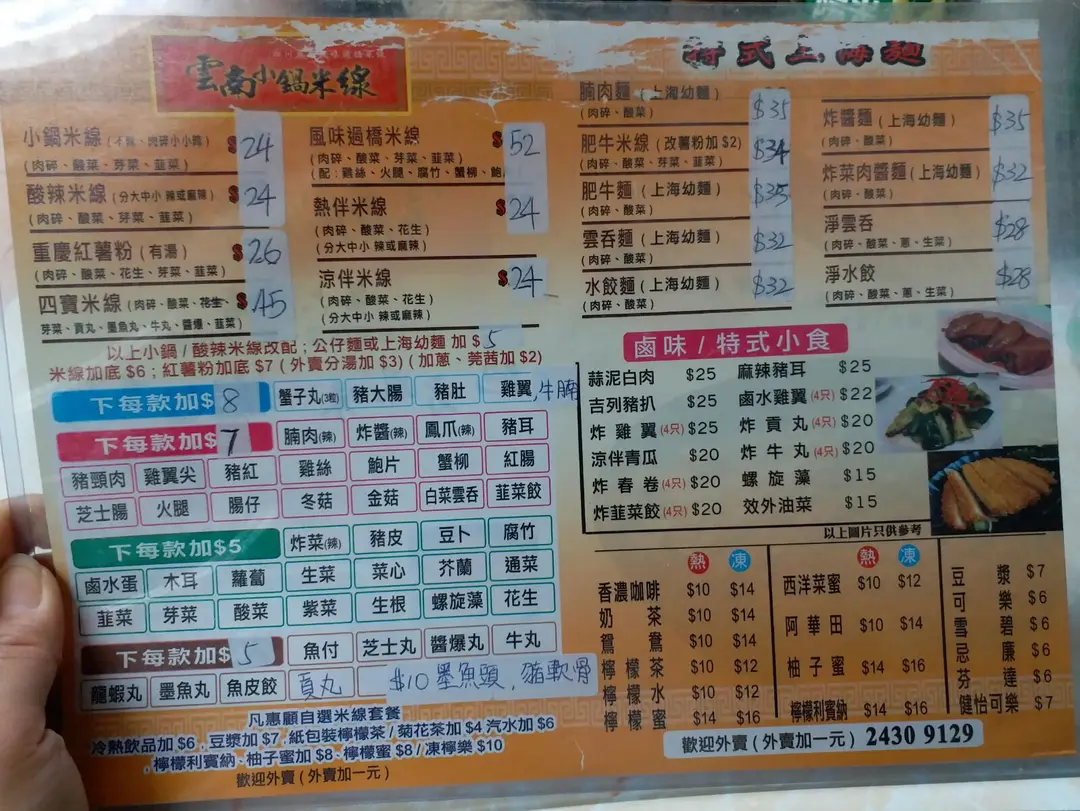 雲南小鍋米線
特式上海麵
小鍋米線
$24
(肉碎、酸菜、芽菜、韮菜)
酸辣米線 (分大中小 辣或麻辣)
$24
(肉碎、酸菜、芽菜、韮菜)
重慶紅薯粉 (有湯)
$26
(肉碎、酸菜、花生、芽菜、韮菜)
四寶米線 (肉碎、酸菜、花生、
$45
芽菜、貢丸、墨魚丸、牛丸、醬爆、韮菜)
風味過橋米線
$52
(肉碎、酸菜、芽菜、韮菜)
(配:雞絲、火腿、腐竹、蟹柳、鮑
熱伴米線
$24
(肉碎、酸菜、花生)
(分大中小 辣或麻辣)
涼伴米線
$24
(肉碎、酸菜、花生)
(分大中小 辣或麻辣)
以上小鍋/酸辣米線改配;公仔麵或上海幼麵 加$5
米線加底 $6;紅薯粉加底 $7 (外賣分湯加 $3) (加蔥、莞茜加 $2)
腩肉麵 (上海幼麵)
$35
(肉碎、酸菜)
肥牛米線 (改薯粉加 $2)
$34
(肉碎、酸菜、芽菜、韮菜)
肥牛麵 (上海幼麵)
$35
(肉碎、酸菜)
雲吞麵 (上海幼麵)
$32
(肉碎、酸菜)
水餃麵 (上海幼麵)
$32
(肉碎、酸菜)
炸醬麵 (上海幼麵)
$35
(肉碎、酸菜)
炸菜肉醬麵 (上海幼麵)
$32
(肉碎、酸菜)
淨雲吞
$28
(肉碎、酸菜、蔥、生菜)
淨水餃
$28
(肉碎、酸菜、蔥、生菜)
下每款加$8 蟹子丸(3粒) 豬大腸 豬肚 雞翼 牛腩
下每款加$7 腩肉(辣) 炸醬(辣) 鳳爪(辣) 豬耳
豬頸肉 雞翼尖 豬紅 雞絲 鮑片 蟹柳 紅腸
芝士腸 火腿 腸仔 冬菇 金菇 白菜雲吞 韮菜餃
下每款加$5 炸菜(辣) 豬皮 豆卜 腐竹
鹵水蛋 木耳 蘿蔔 生菜 菜心 芥蘭 通菜
韮菜 芽菜 酸菜 紫菜 生根 螺旋藻 花生
下每款加$5 魚付 芝士丸 醬爆丸 牛丸
龍蝦丸 墨魚丸 魚皮餃 貢丸 $10墨魚頭,豬軟骨
凡惠顧自選米線套餐
冷熱飲品加 $6,豆漿加 $7,紙包裝檸檬茶/菊花茶加 $4 汽水加 $6
,檸檬利賓納、柚子蜜加 $8、檸檬蜜 $8/凍檸樂 $10
歡迎外賣 (外賣加一元)
鹵味/特式小食
蒜泥白肉 $25 麻辣豬耳 $25
吉列豬扒 $25 鹵水雞翼 (4只) $22
炸雞翼 (4只) $25 炸貢丸 (4只) $20
涼伴青瓜 $20 炸牛丸 (4只) $20
炸春卷 (4只) $20 螺旋藻 $15
炸韮菜餃 (4只) $20 效外油菜 $15
以上圖片只供參考
熱 凍
香濃咖啡 $10 $14
奶茶 $10 $14
鴛鴦 $10 $14
檸檬茶 $10 $12
檸檬水 $10 $12
檸檬蜜 $14 $16
熱 凍
西洋菜蜜 $10 $12
阿華田 $10 $14
柚子蜜 $14 $16
檸檬利賓納 $14 $16
豆漿 $7
可樂 $6
雪碧 $6
忌廉 $6
芬達 $6
健怡可樂 $7
歡迎外賣 (外賣加一元) 2430 9129